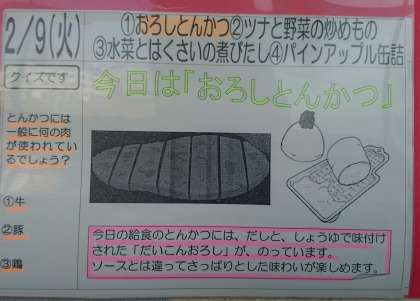 2/9(火)
①おろしとんかつ②ツナと野菜の炒めもの
③水菜とはくさいの煮びたし④パインアップル缶詰
クイズです
今日は「おろしとんかつ」
とんかつには
一般に何の肉
が使われてい
るでしょう？
①牛
②豚
③鶏
今日の給食のとんかつには、だしと、しょうゆで味付け
された「だいこんおろし」が、のっています。
ソースとは違ってさっぱりとした味わいが楽しめます。